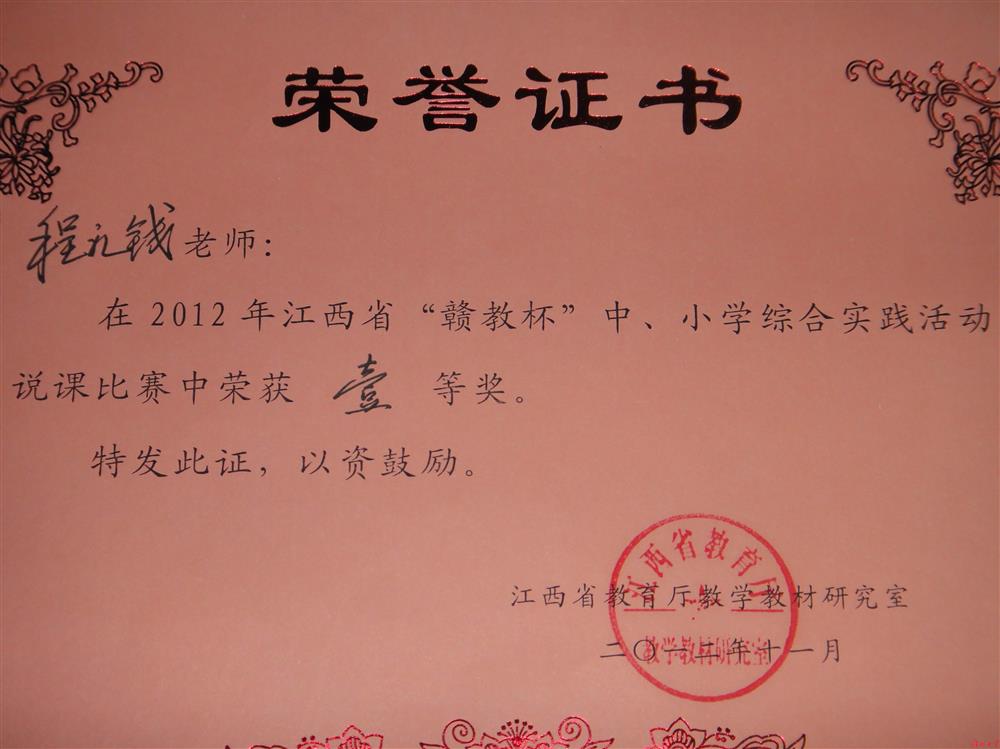 荣誉证书
程九钱老师：
在2012年江西省“赣教杯”中、小学综合实践活动
说课比赛中荣获 壹 等奖。
特发此证，以资鼓励。
江西省教育厅
江西省教育厅教学教材研究室
二〇一二年十一月
教学教材研究室